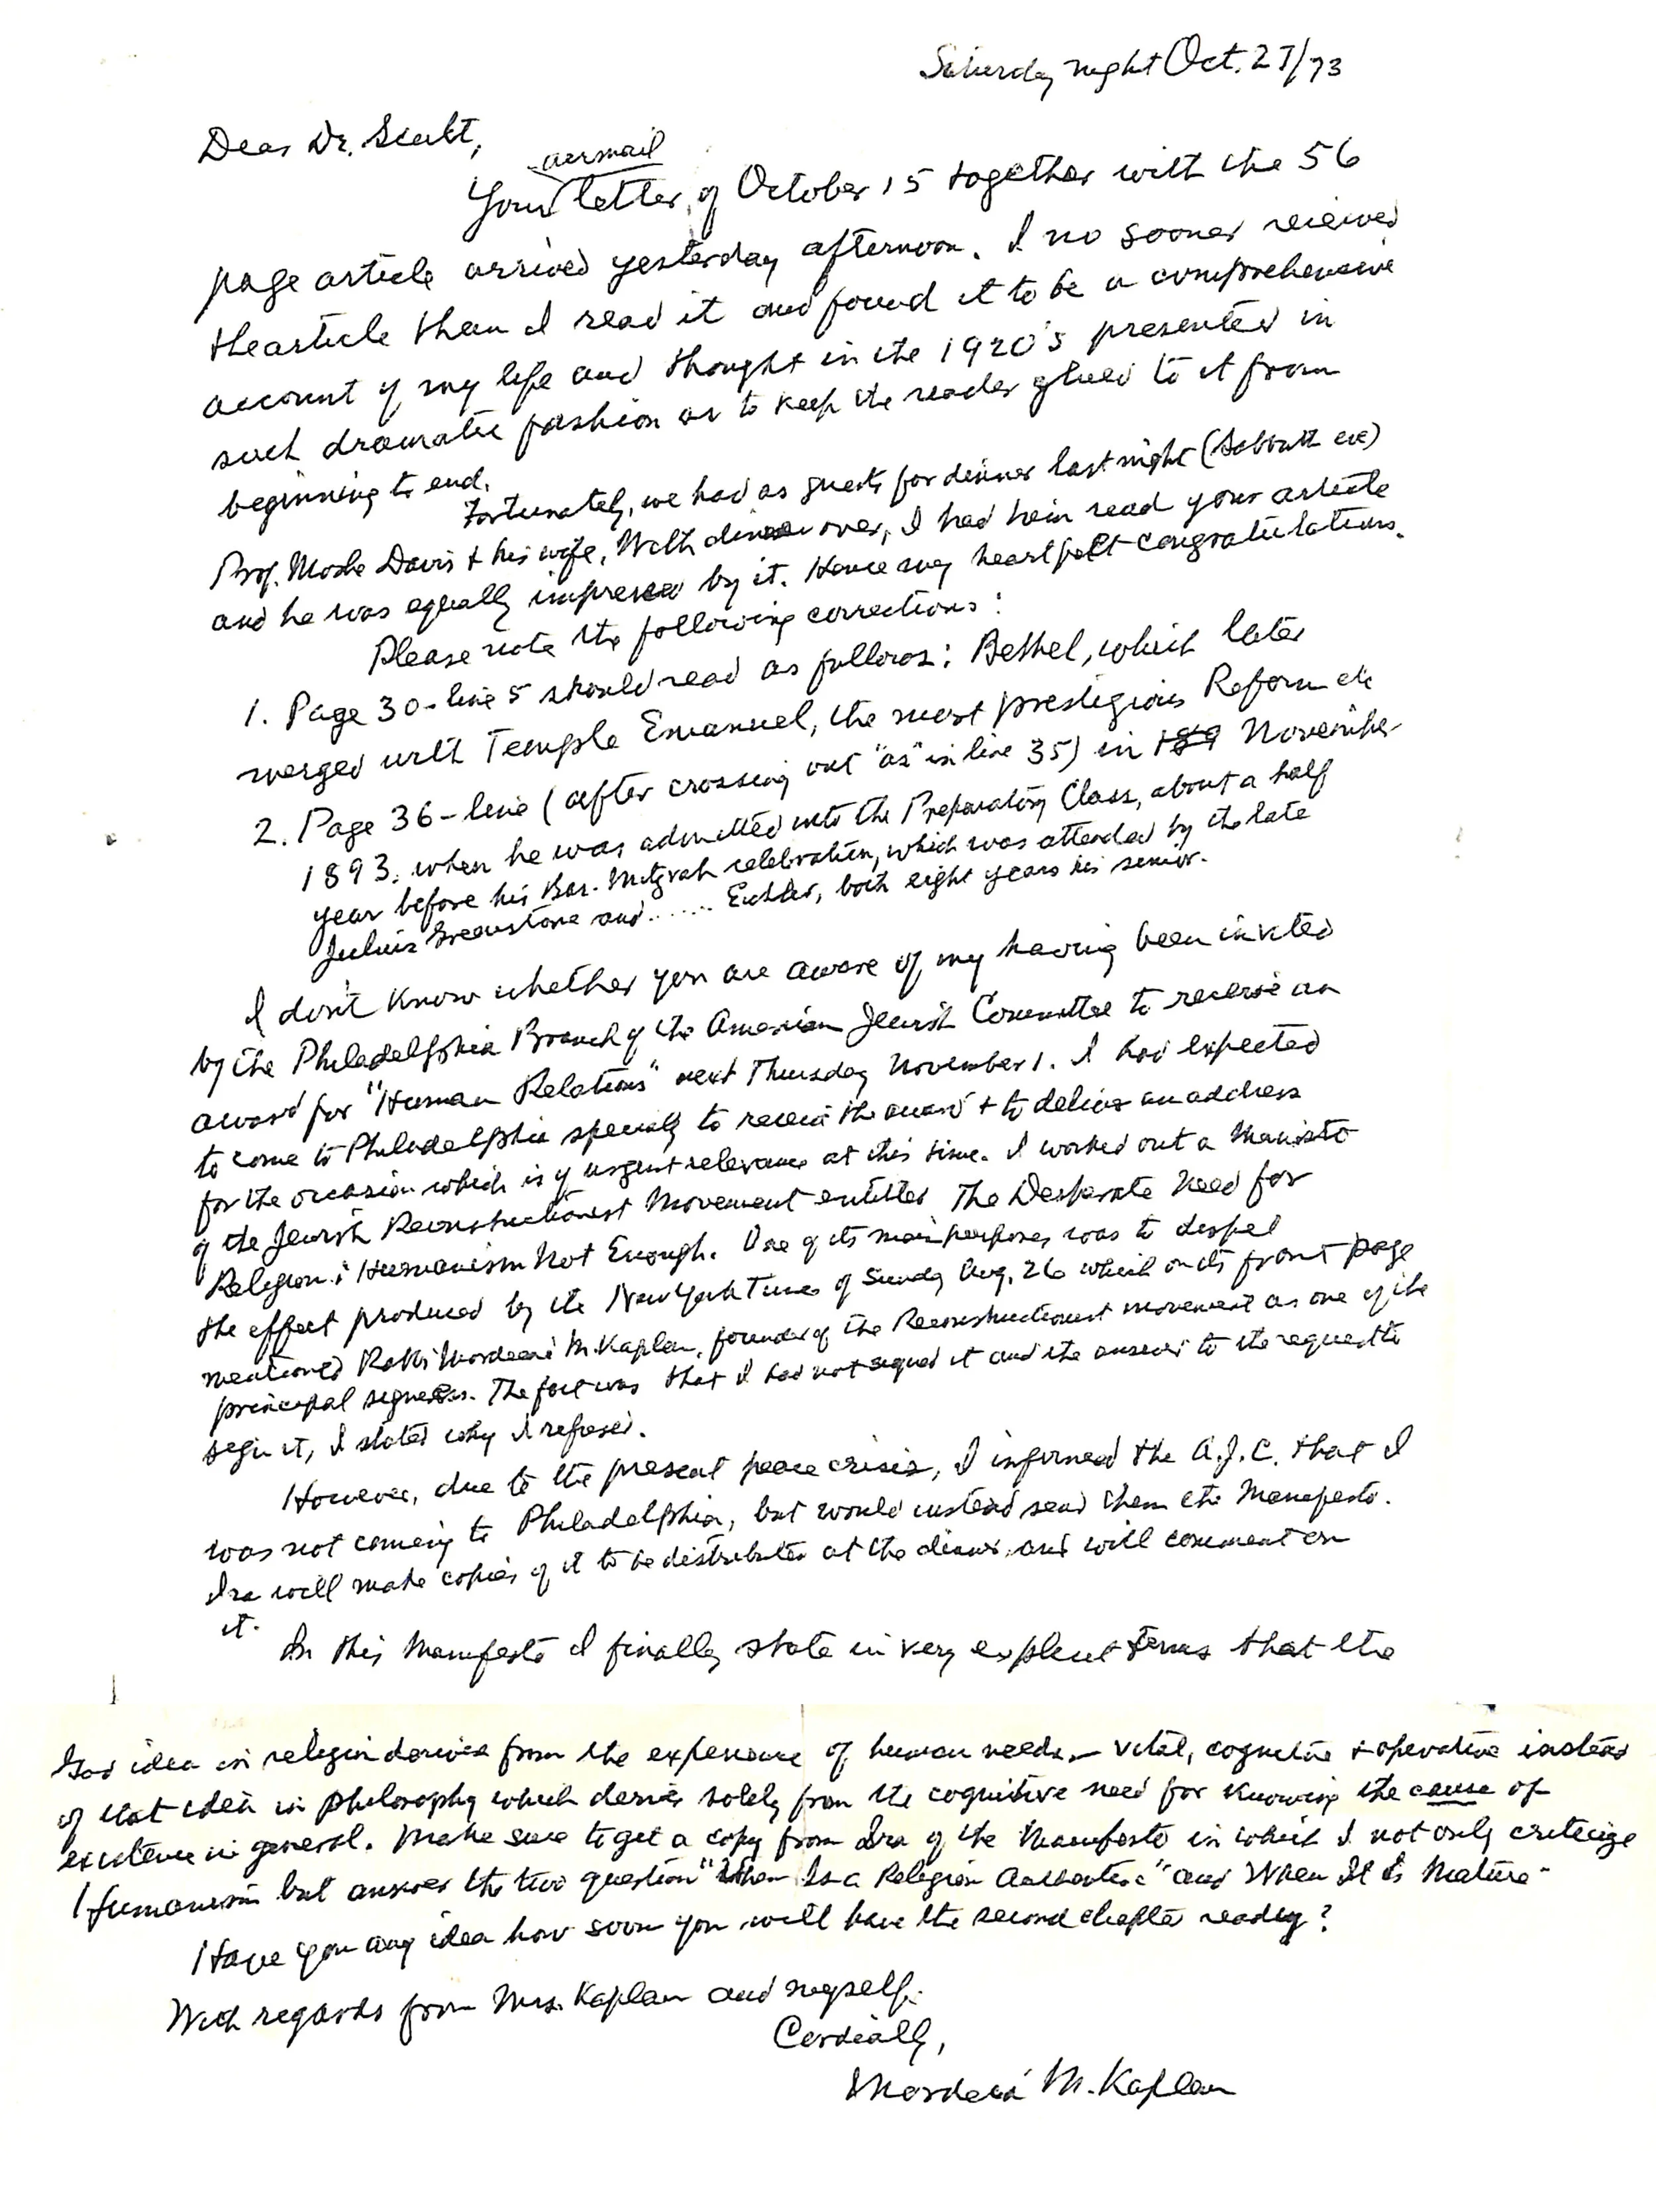 Saturday night Oct. 27/73
Dear Dr. Scult,
airmail
Your letter of October 15 together with the 56
page article arrived yesterday afternoon. I no sooner received
the article than I read it and found it to be a comprehensive
account of my life and thought in the 1920's presented in
such dramatic fashion as to keep the reader glued to it from
beginning to end.
Fortunately, we had as guests for dinner last night (Sabbath eve)
Prof. Moshe Davis & his wife. With dinner over, I had him read your article
and he was equally impressed by it. Hence my heartfelt congratulations.
Please note the following corrections:
1. Page 30 - line 5 should read as follows: Bethel, which later
merged with Temple Emanuel, the most prestigious Reform etc
2. Page 36 - line (after crossing out "as" in line 35) in 189 November
1893. when he was admitted into the Preparatory Class, about a half
year before his Bar-Mitzvah celebration, which was attended by the late
Julius Greenstone and ...... both eight years his senior.
I don't know whether you are aware of my having been invited
by the Philadelphia Branch of the American Jewish Committee to receive an
award for "Human Relations" next Thursday November 1. I had expected
to come to Philadelphia specially to receive the award & to deliver an address
for the occasion which is of urgent relevance at this time. I worked out a Manifesto
of the Jewish Reconstructionist Movement entitled The Desperate Need for
Religion: Humanism Not Enough. One of its main purposes was to dispel
the effect produced by the New York Times of Sunday Aug. 26 which on its front page
mentioned Rabbi Mordecai M. Kaplan, founder of the Reconstructionist movement as one of the
principal signers. The fact was that I had not signed it and the answer to the request to
sign it, I stated why I refused.
However, due to the present peace crisis, I informed the A.J.C. that I
was not coming to Philadelphia, but would instead send them the Manifesto.
Ira will make copies of it to be distributed at the dinner, and will comment on
it.
In this Manifesto I finally state in very explicit terms that the
God idea in religion derives from the experience of human needs - vital, cognitive & operative instead
of that idea in philosophy which derives solely from the cognitive need for knowing the cause of
existence in general. Make sure to get a copy from Ira of the Manifesto in which I not only criticize
Humanism but answer the two question "When Is a Religion Authentic" and When It Is Mature -
Have you any idea how soon you will have the second chapter ready?
With regards from Mrs. Kaplan and myself.
Cordially,
Mordecai M. Kaplan